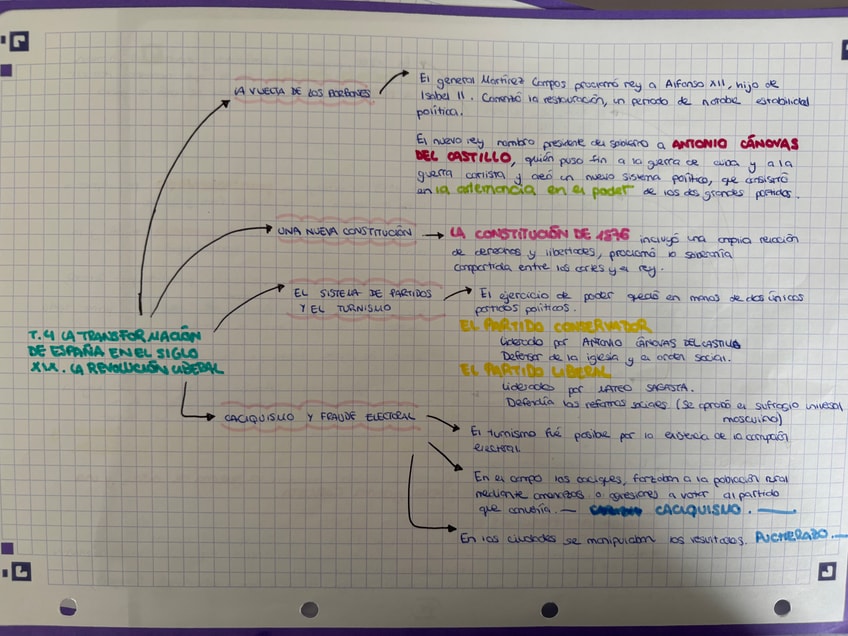 LA VUELTA DE LOS BORBONES
El general Martínez Campos proclamó rey a Alfonso XII, hijo de
Isabel II. Comentó la restauración, un periodo de notable estabilidad
política.
El nuevo rey nombro presidente del gobierno a ANTONIO CÁNOVAS
DEL CASTILLO, quién puso fin a la guerra de cuba y a la
guerra carlista y creó un nuevo sistema político, que consistió
en la alternancia en el poder de los dos grandes partidos.
UNA NUEVA CONSTITUCIÓN
LA CONSTITUCIÓN DE 1876 incluyó una amplia relación
de derechos y libertades, proclamó la soberanía
compartida entre las cortes y el rey.
EL SISTEMA DE PARTIDOS
Y EL TURNISMO
El ejercicio de poder quedó en manos de dos únicos
partidos políticos.
EL PARTIDO CONSERVADOR
Liderado por ANTONIO CÁNOVAS DEL CASTILLO
Defensor de la iglesia y el orden social.
EL PARTIDO LIBERAL
Liderados por MATEO SAGASTA.
Defendía las reformas sociales (Se aprobó el sufragio universal
masculino)
T.4 LA TRANSFORMACIÓN
DE ESPAÑA EN EL SIGLO
XIX. LA REVOLUCIÓN LIBERAL
CACIQUISMO Y FRAUDE ELECTORAL
El turnismo fué posible por la existencia de la corrupción
electoral.
En el campo los caciques, forzaban a la población rural
mediante amenazas o agresiones a votar al partido
que convenía. — CACIQUISMO. —
En las ciudades se manipulaban los resultados. PUCHERAZO. —